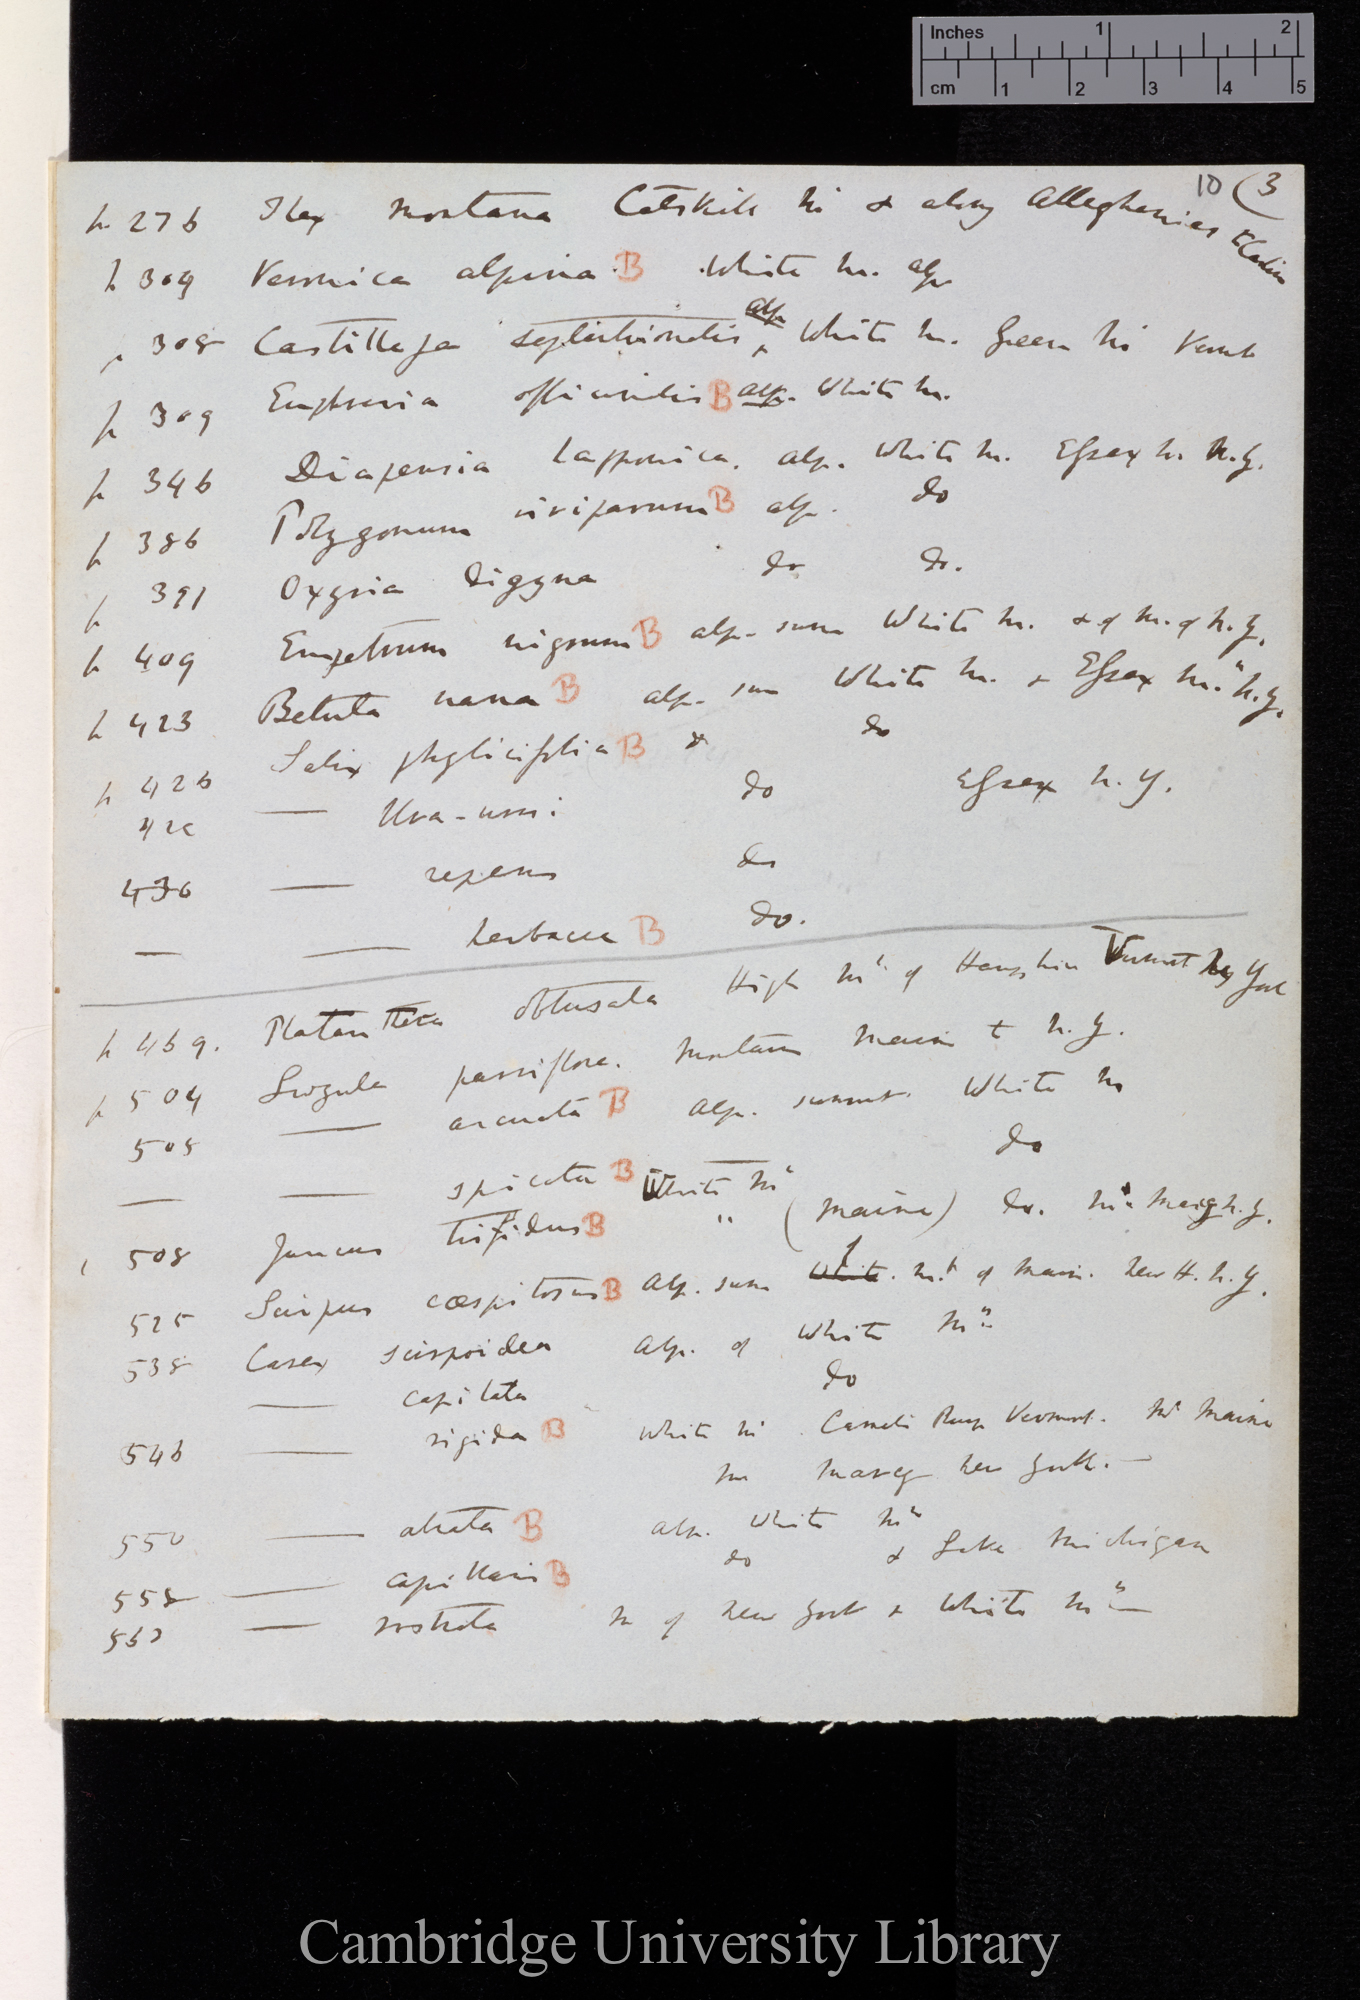 Inches 1 2
cm 1 2 3 4 5
10 (3
p. 276 Ilex montana Catskill Mts & along Alleghenies
p 304 Veronica alpina B White Mn. alp
p 308 Castilleja septentrionalis alp White Mn. Green Mts Vermt
p 309 Euphrasia officinalis B alp. White Mn.
p 346 Diapensia Lapponica. alp. White Mn. Essex Mn. N.Y.
p 386 Polygonum viviparum B alp. do
p 391 Oxyria digyna do do.
p 409 Empetrum nigrum B alp. sum White Mn. & of Mn. of N.Y.
p 423 Betula nana B alp. sum White Mn. & Essex Mn. N.Y.
p 426 Salix phylicifolia B & do
426 — Uva-ursi: do Essex N.Y.
430 — repens do
— — herbacea B do.
p 469. Platanthera obtusata High Mts of Hampshire Vermont New York
p 504 Luzula parviflora. Mountain Maine & N.Y.
505 — arcuata B Alp. summit. White Mn
— — spicata B White Mts do
508 Juncus trifidus B " (Maine) do. Mn Marcy N.Y.
525 Scirpus cæspitosus B Alp. sum White. Mts of Main. New H. N.Y.
538 Carex scirpoidea Alp. of White Mns
— capitata do
546 — rigida B White Mts Camels Rump Vermont. Mts Maine
Mn Marcy New York. —
550 — atrata B alp. White Mns
558 — capillaris B do & Lake Michigan
563 — rostrata Mn of New York & White Mns —
Cambridge University Library